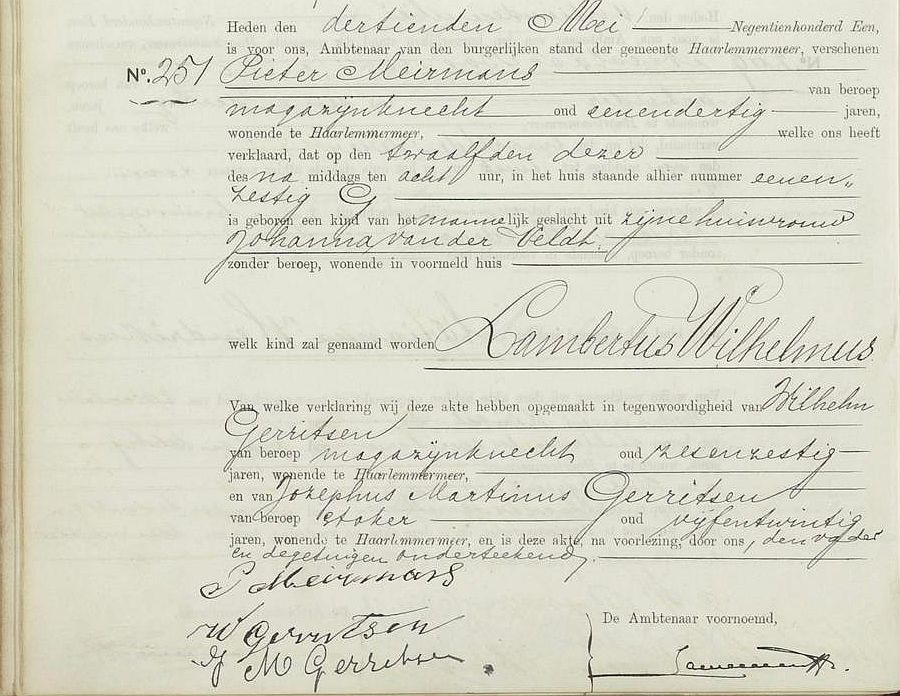 Heden den dertienden Mei Negentienhonderd Een,
is voor ons, Ambtenaar van den burgerlijken stand der gemeente Haarlemmermeer, verschenen
No. 251 Pieter Meirmans van beroep
magazijnknecht oud eenendertig jaren,
wonende te Haarlemmermeer, welke ons heeft
verklaard, dat op den twaalfden dezer
des na middags ten acht uur, in het huis staande alhier nummer eenen„
zestig G
is geboren een kind van het mannelijk geslacht uit zijne huisvrouw
Johanna van der Veldt.
zonder beroep, wonende in voormeld huis
welk kind zal genaamd worden Lambertus Wilhelmus
Van welke verklaring wij deze akte hebben opgemaakt in tegenwoordigheid van Wilhelm
Gerritsen
van beroep magazijnknecht oud zesenzestig
jaren, wonende te Haarlemmermeer,
en van Jozephus Martinus Gerritsen
van beroep stoker oud vijfentwintig
jaren, wonende te Haarlemmermeer, en is deze akte, na voorlezing, door ons, den vader
en de getuigen onderteekend.
P Meirmans
W Gerritsen
J M Gerritsen
De Ambtenaar voornoemd,